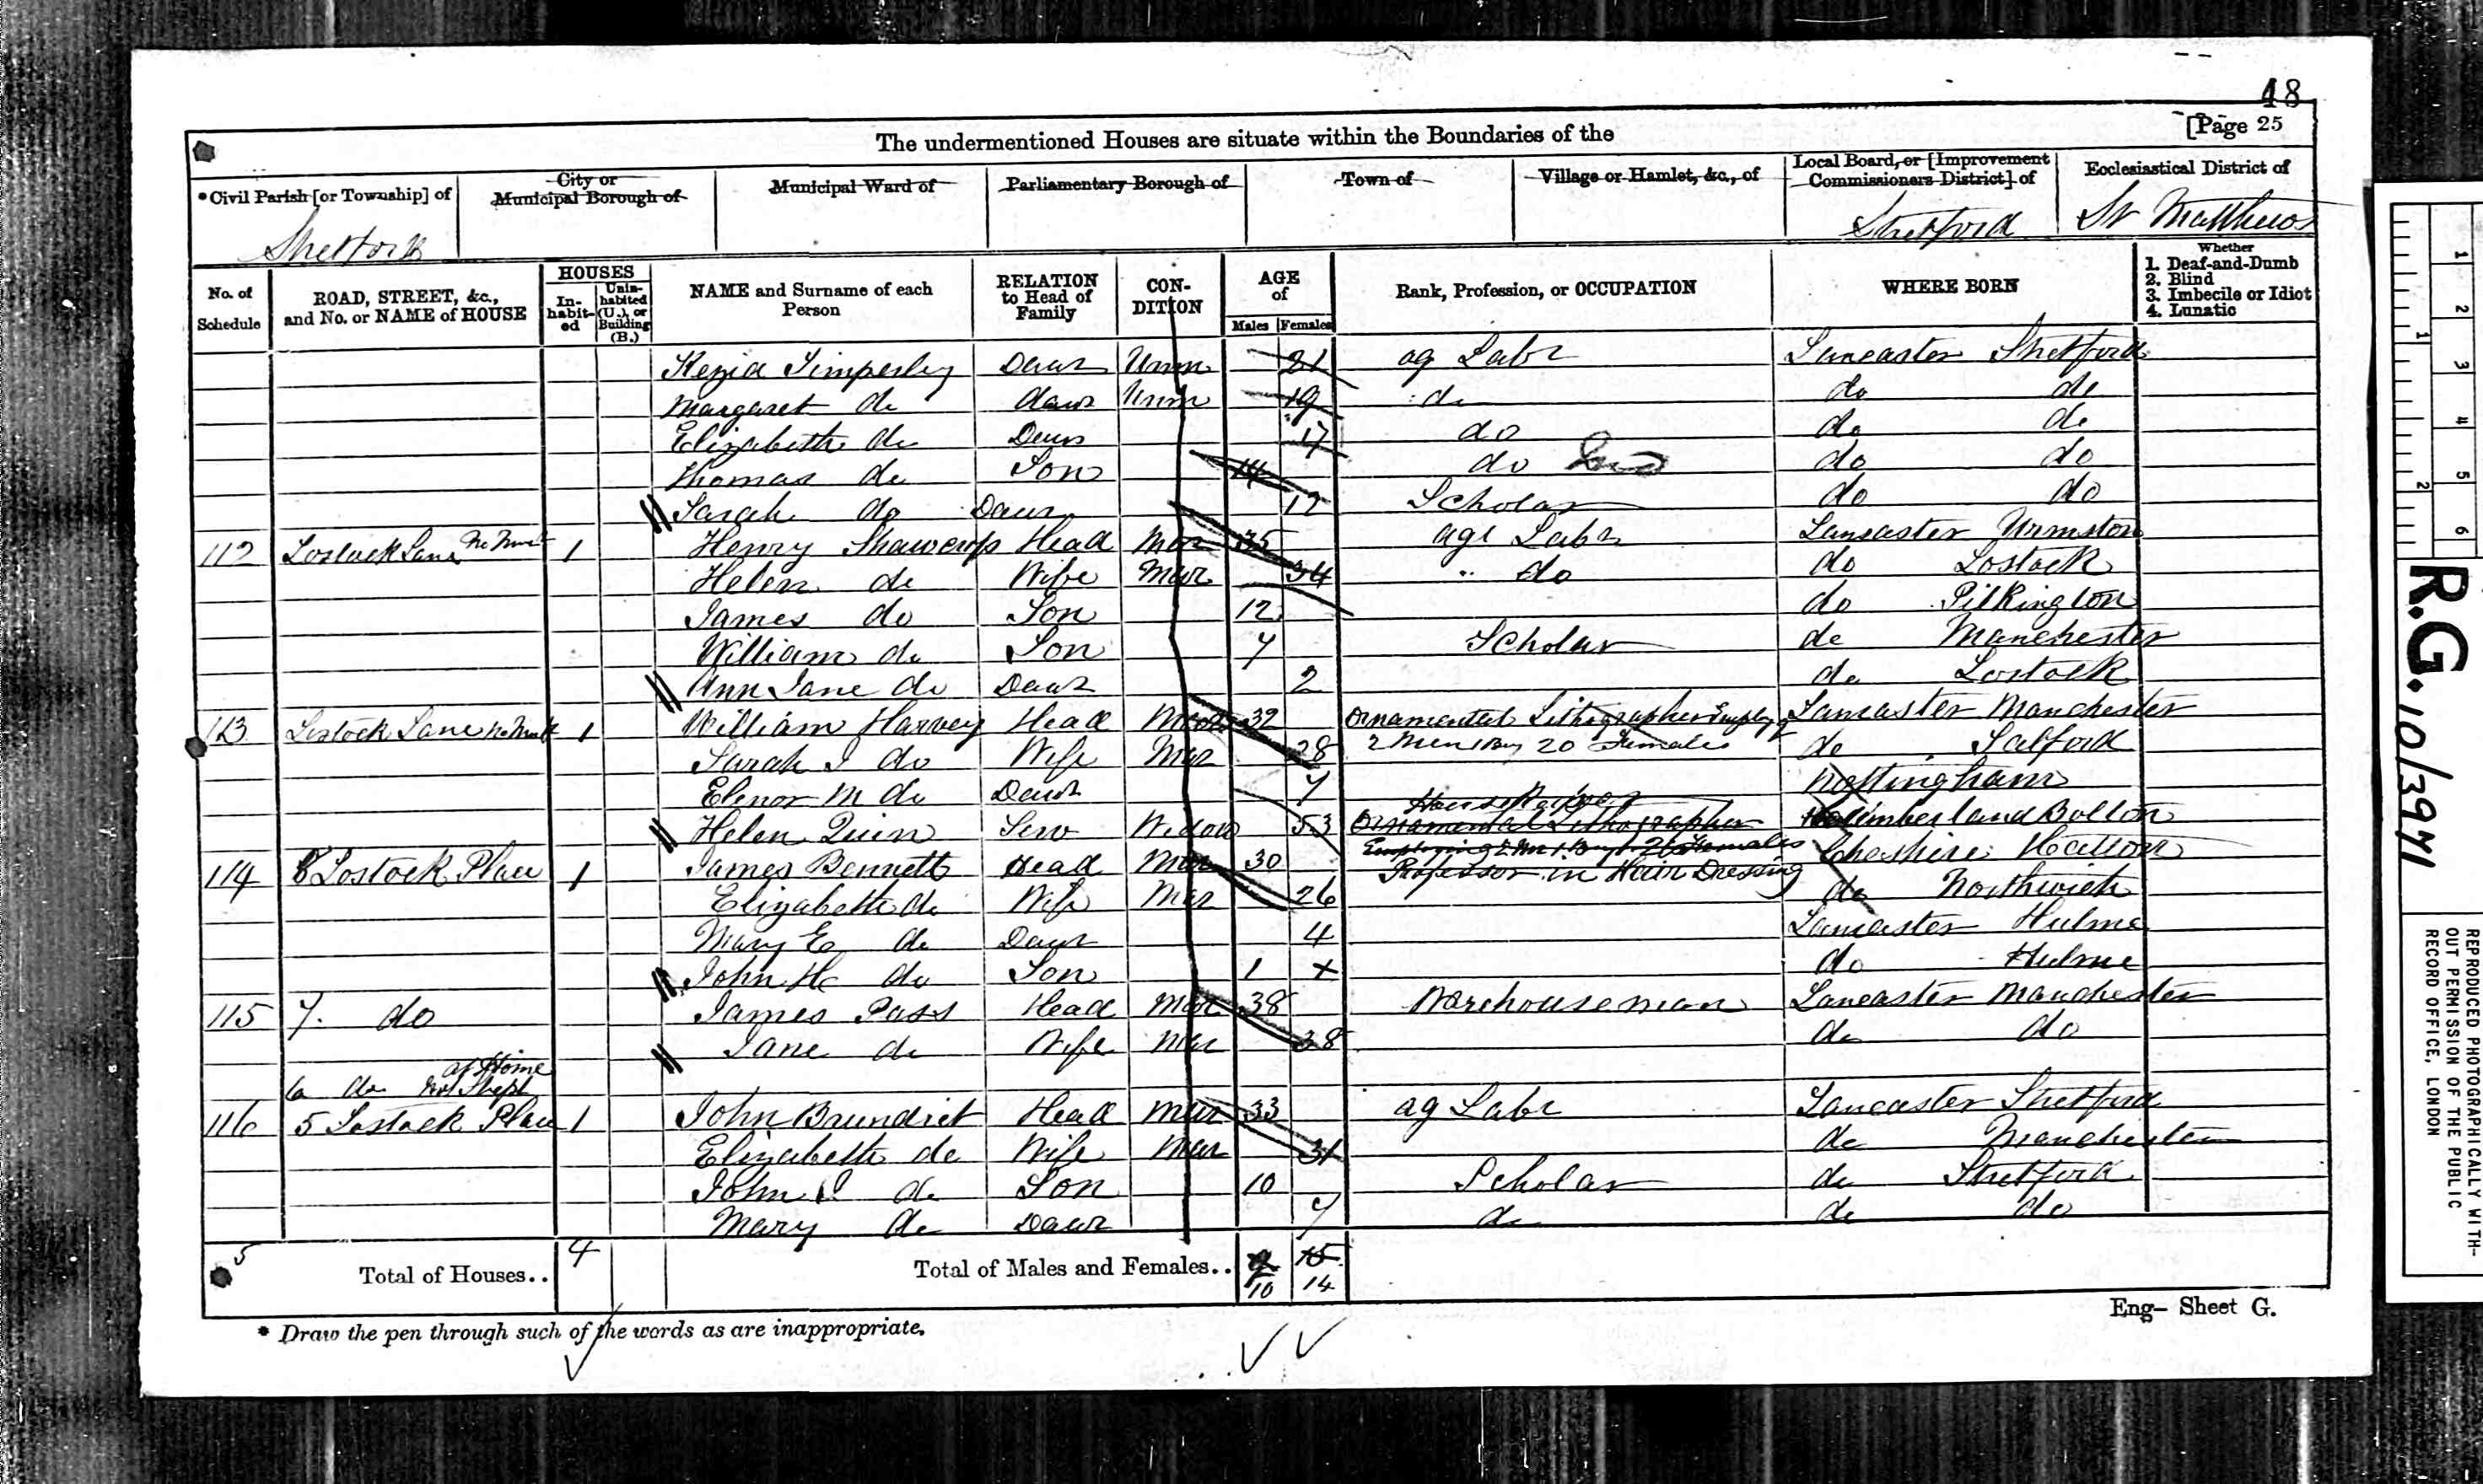 48
[Page 25
The undermentioned Houses are situate within the Boundaries of the
*Civil Parish [or Township] of City or Municipal Borough of Municipal Ward of Parliamentary Borough of Town of Village or Hamlet, &c., of Local Board, or [Improvement Commissioners District] of Ecclesiastical District of
Stretford Stretford St Matthews
No. of Schedule ROAD, STREET, &c., and No. or NAME of HOUSE HOUSES In-habit-ed Unin-habited (U.), or Building (B.) NAME and Surname of each Person RELATION to Head of Family CON-DITION AGE of Males Females Rank, Profession, or OCCUPATION WHERE BORN Whether 1. Deaf-and-Dumb 2. Blind 3. Imbecile or Idiot 4. Lunatic
Kezia Timperley Daur Unm 21 ag Labr Lancaster Stretford
Margaret do daur Unm 19 do do do
Elizabeth do Daur 17 do do do
Thomas do Son 14 do do do
Sarah do Daur 12 Scholar do do
112 Lostock Lane 1 Henry Shawcross Head Mar 35 agl Labr Lancaster Urmston
Helen do Wife Mar 34 do do Lostock
James do Son 12 do Pilkington
William do Son 7 Scholar do Manchester
Ann Jane do Daur 2 do Lostock
113 Lostock Lane 1 William Harvey Head Mar 32 Ornamental Lithographer Lancaster Manchester
Sarah J do Wife Mar 28 2 Men 1 Boy 20 Females do Salford
Elenor M do Daur 7 Nottingham
Helen Quin Serv Widow 53 Housekeeper Ornamental Lithographer Cumberland Bolton
114 8 Lostock Place 1 James Bennett Head Mar 30 Professor in Hair Dressing Cheshire
Elizabeth do Wife Mar 26 do Northwich
Mary E do Daur 4 Lancaster Hulme
John H do Son 1 x do Hulme
115 7. do James Pass Head Mar 38 Warehouseman Lancaster Manchester
Jane do Wife Mar 38 do do
6 do not at Home
116 5 Lostock Place 1 John Brundrit Head Mar 33 ag Labr Lancaster Stretford
Elizabeth do Wife Mar 31 do Manchester
John J do Son 10 Scholar do Stretford
Mary do Daur 7 do do do
5 Total of Houses.. 4 Total of Males and Females.. 10 15 14
* Draw the pen through such of the words as are inappropriate.
Eng— Sheet G.
1
2
3
4
5
6
1
2
R.G. 10/3971
REPRODUCED PHOTOGRAPHICALLY WITH-
OUT PERMISSION OF THE PUBLIC
RECORD OFFICE, LONDON